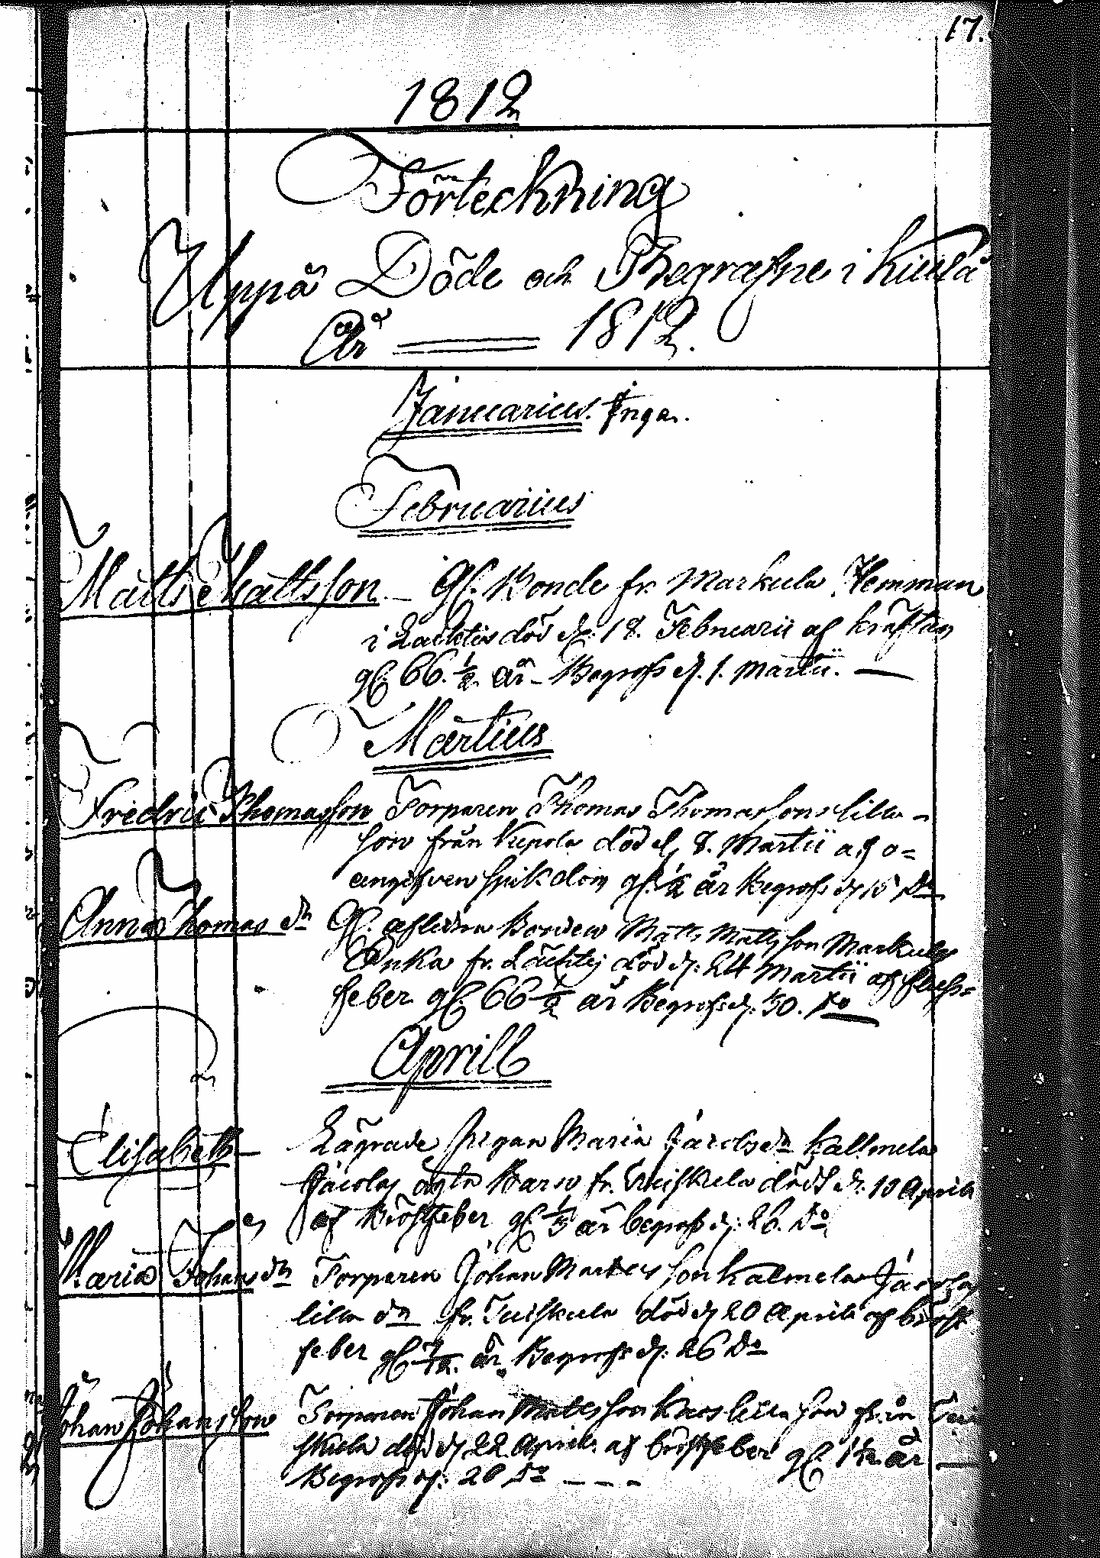 17.
1812
Förteckning
Uppå Döde och Begrafne i
År 1812.
Januarius. Inga.
Februarius
Matts Mattsson Gl. Bonde fr. Markula Hemman
i död d. 18. Februarii af kräftan
gl. 66. ½ år Begrofs d. 1. Martii.
Martius
Fredric Thomasson Torparen Thomas Thomassons lilla
son från död d. 8. Martii af o=
angifven sjukdom gl. ½ år Begrofs d.
Anna Thomas dr Gl. aflidna Bonden Matts Mattsson Markulas
Enka fr. död d. 24 Martii af
feber gl. 66 ½ år Begrofs d. 30. do
Aprill
Elisabeth Lägrade Pigan Maria Jacobs dr Kallmela
Jacobs Barn fr. död d. 10 Aprill
af Bröstfeber gl. år begrofs d. 26. do
Maria Johans dr Torparen Johan son Kalmela
lilla dr fr. Tuiskula död d. 20 Aprill af bröst
feber gl. år Begrofs d. 26 do
Johan Johansson Torparen Johan Mattsson lilla son från Tui
skula död d. 22 Aprill af bröstfeber gl. 1½ år
Begrofs d. 26 do